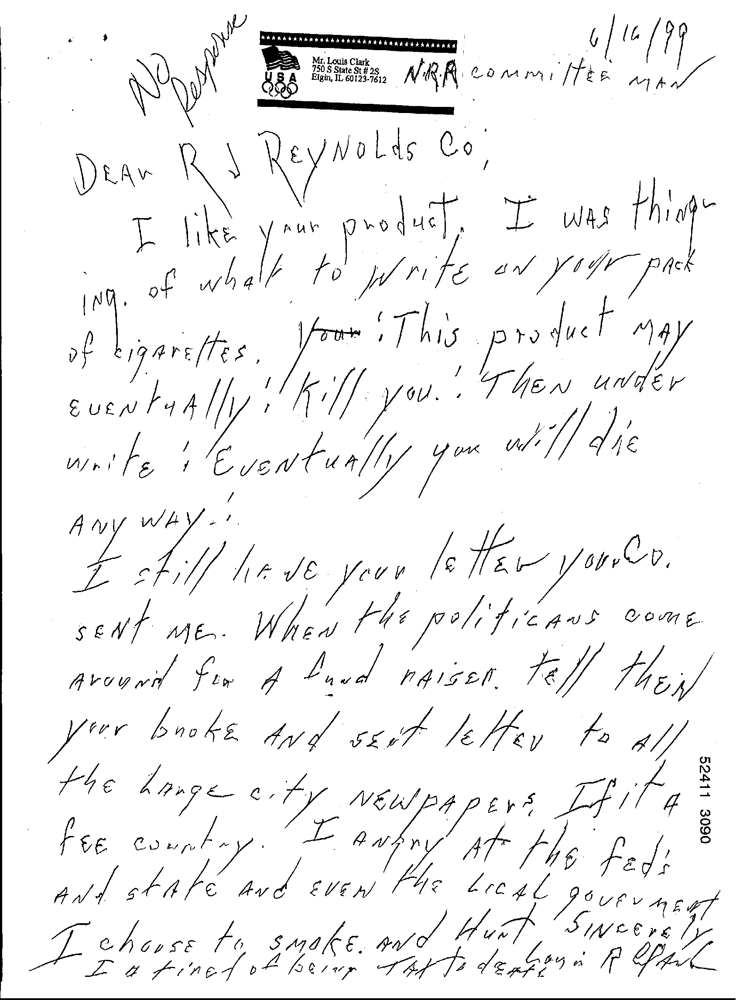 6/16/99
No
Response
USA
Mr. Louis Clark
750 S State St # 2S
Elgin, IL 60123-7612
N.R.A committee MAN
DEAr R J REYNOLds Co,
I likE your product. I WAS thing-
ing. of what to writE on your pAck
of cigArettes. Your "This product MAY
EvENtuAlly" Kill you." THEN under
writE "EvENtuAlly you will diE
ANY WAY."
I still hAvE your letter your Co.
sENt ME. WHEN thE politicANS comE
Around for A fund rAiser. tell thEM
your brokE ANd sENt letter to All
thE LArgE city NEWpApErs, If it A
fEE country. I Angry At thE fed's
ANd stAtE ANd EVEN thE LOCAL gouverment
I chouse to smokE. ANd Hunt SiNCErEly
I a tired of being TAX to deAth Louis R ClArk
52411 3090